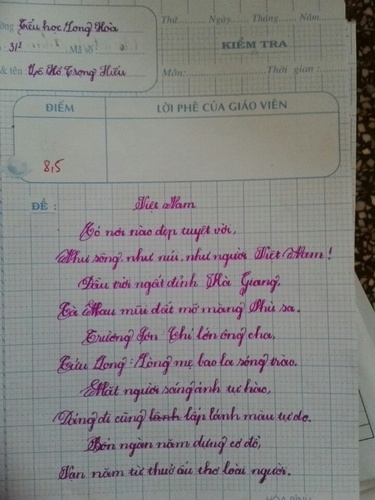 ờng Tiểu học Long Hòa
: 31²
& tên: Võ Hồ Trọng Hiếu
Thứ ........ Ngày ...... Tháng ...... Năm
KIỂM TRA
Môn: Thời gian:
ĐIỂM LỜI PHÊ CỦA GIÁO VIÊN
8,5
ĐỀ: Việt Nam
Có nơi nào đẹp tuyệt vời,
Như sông, như núi, như người Việt Nam!
Đầu trời ngất đỉnh Hà Giang,
Cà Mau mũi đất mỡ màng Phù sa.
Trường Sơn: Chí lớn ông cha,
Cửu Long: Lòng mẹ bao la sóng trào.
Mặt người sáng ánh tự hào,
Dáng đi cũng lánh lấp lánh màu tự do.
Bốn ngàn năm dựng cơ đồ,
Vạn năm từ thuở ấu thơ loài người.
HÒA BÌNH